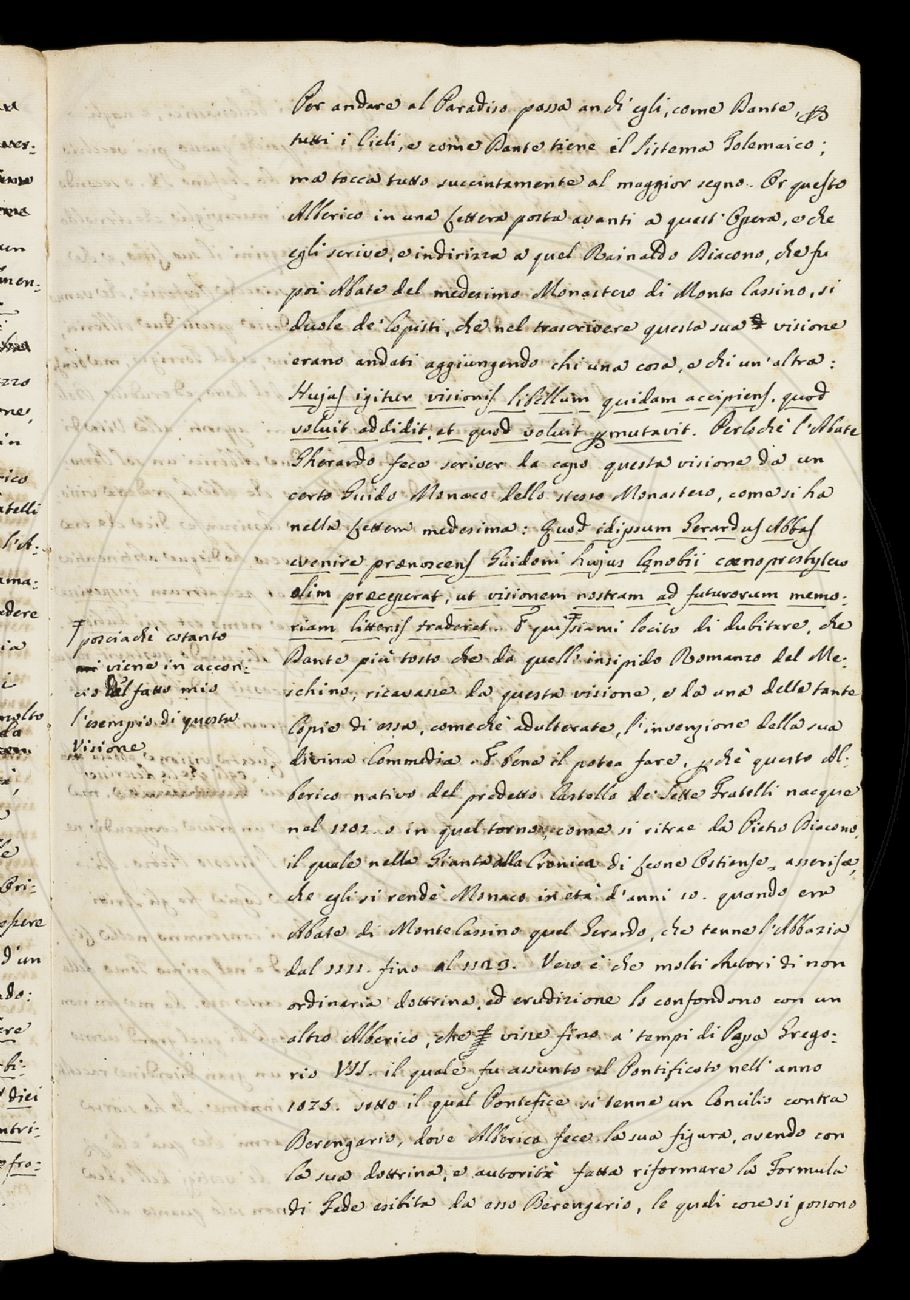 Per andare al Paradiso passa anch'egli, come Dante,
tutti i Cieli, e come Dante tiene il Sistema Tolemaico;
ma tocca tutto succintamente al maggior segno. Or questo
Alberico in una Lettera posta avanti a quest'Opera, e che
egli scrive, e indirizza a quel Rainaldo Diacono, che fu
poi Abate del medesimo Monastero di Monte Cassino, si
duole de' Copisti, che nel trascrivere questa sua visione
erano andati aggiungendo chi una cosa, e chi un'altra:
Hujus igitur visionis libellum quidam accipiens, quod
voluit addidit, et quod voluit permutavit. Perloché l'Abate
Gherardo fece scriver da capo questa visione da un
certo Guido Monaco dello stesso Monastero, come si ha
nella Lettera medesima: Quod idipsum Gerardus Abbas
evenire prænoscens Guidoni hujus Cænobii cœnoprestytero
olim præceperat, ut visionem nostram ad futurorum memo-
riam litteris traderet. E quì siami lecito di dubitare, che
Dante più tosto che da quell'insipido Romanzo del Me-
schino, ricavasse da questa visione, e da una delle tante
Copie di essa, comechè adulterate, l'invenzione della sua
divina Commedia. E bene il potea fare, pchè questo Al-
berico nativo del predetto Castello de' Sette Fratelli nacque
nel 1101. o in quel torno, come si ritrae da Pietro Diacono,
il quale nella Giunta alla Cronica di Leone Ostiense, asserisce,
che egli si rendè Monaco in età d'anni 10. quando era
Abate di Monte Cassino quel Gerardo, che tenne l'Abbazia
dal 1111. fino al 1123. Vero è che molti Autori di non
ordinaria dottrina, ed erudizione lo confondono con un
altro Alberico, che visse fino a' tempi di Papa Grego-
rio VII. il quale fu assunto al Pontificato nell'anno
1075. sotto il qual Pontefice si tenne un Concilio contra
Berengario, dove Alberico fece la sua figura, avendo con
la sua dottrina, e autorità fatta riformare la Formula
di Fede esibita da esso Berengario, le quali cose si possono
posciachè cotanto
viene in accon-
cio dal fatto mio
l'esempio di questa
Visione